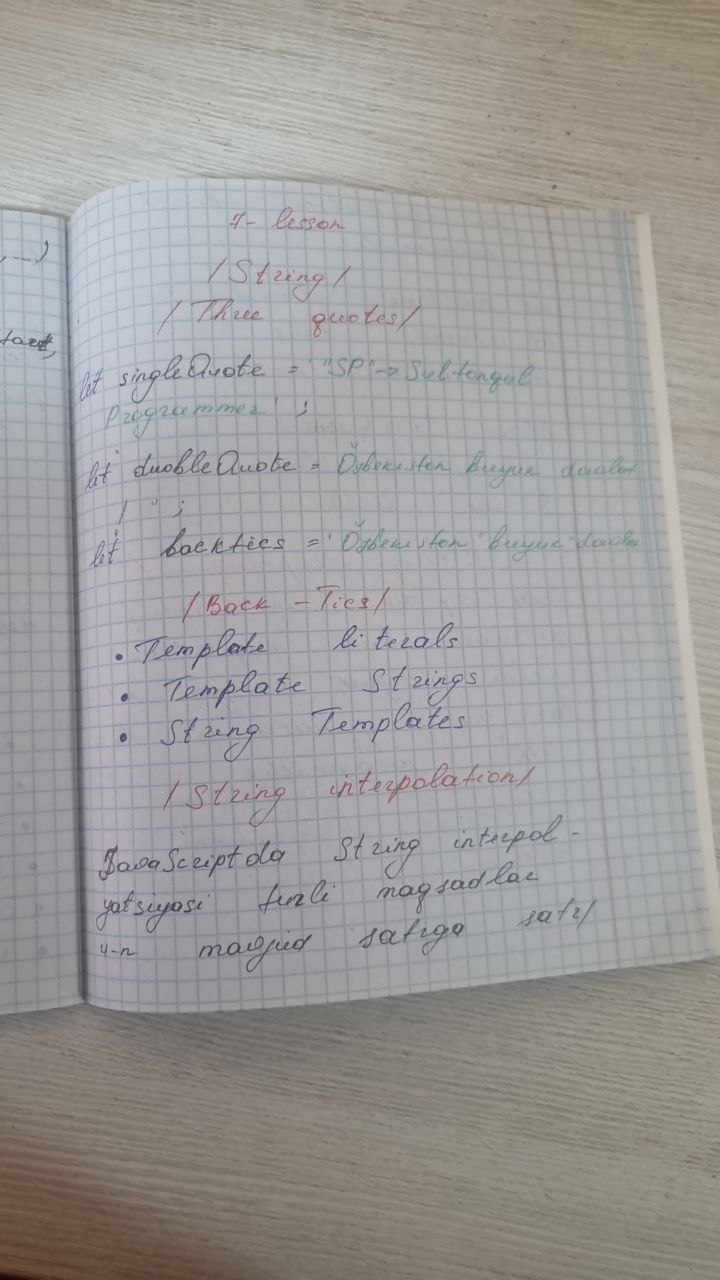 7- lesson
/String/
/Three quotes/
let singleQuote = '"SP"-> Sultonqul
Programmer' ;
let duobleQuote = Ŏzbekiston buyuk davlat
/ " ;
let backtics = ` Ŏzbekiston buyuk davla
/Back - Tics/
• Template literals
• Template Strings
• String Templates
/String interpolation/
JavaScriptda String interpol -
yatsiyasi turli maqsadlar
u-n mavjud satrga satr/